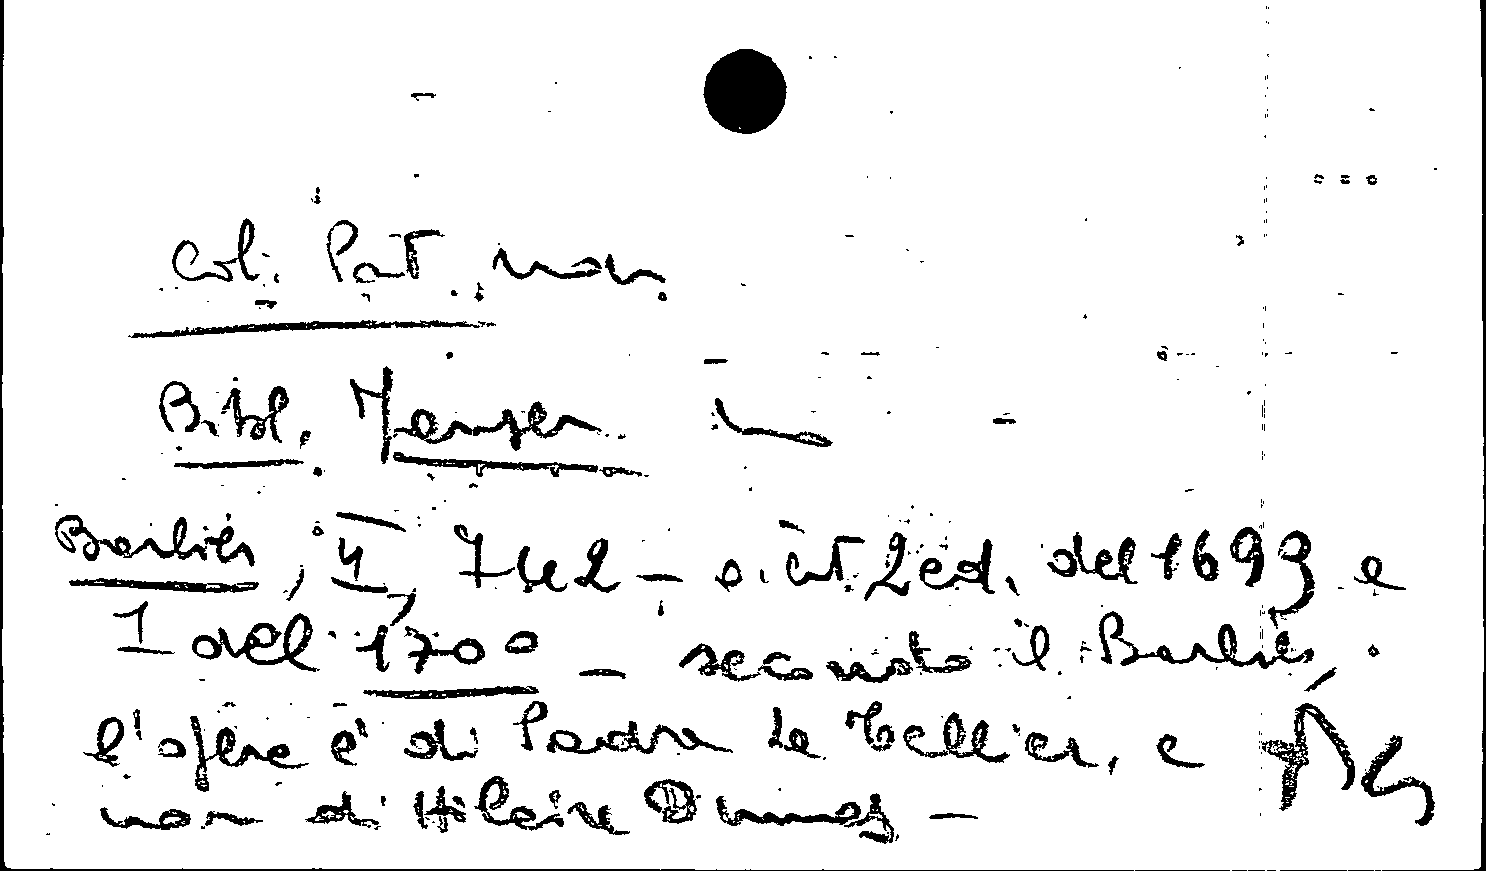 Col. Pat. non.
Bibl. Jansen
Barbier, II, 742 – s. cit. 2 ed. del 1699 e
1 del 1700 – secondo il Barbier,
l'opera è di Padre Le Tellier, e
non di Hilaire Dumas –